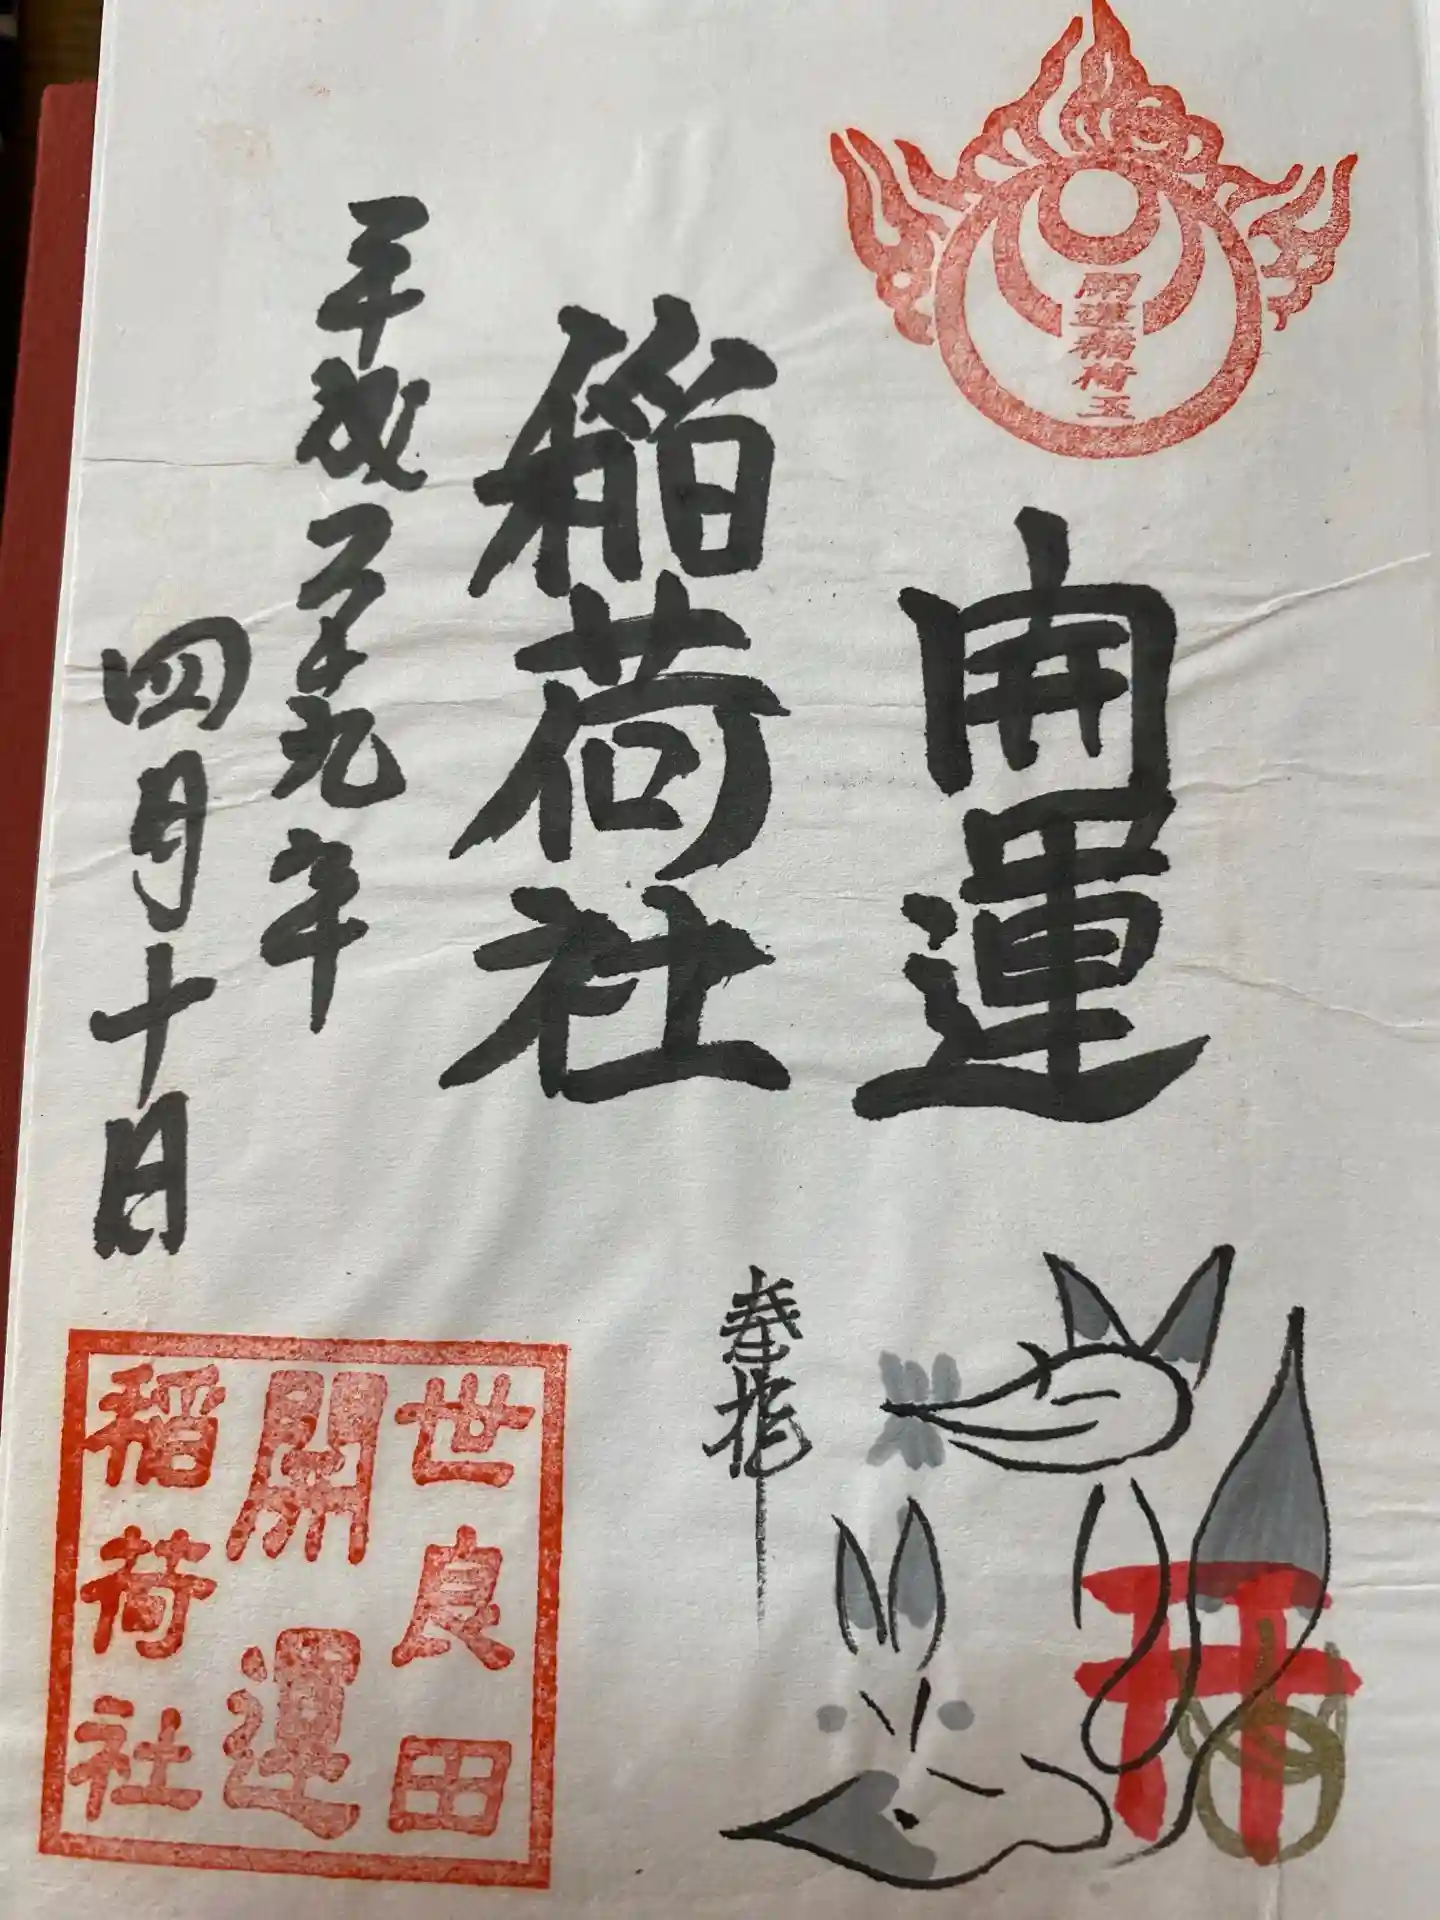 開運稲荷玉
開運
奉拝
稲荷社
平成二十九年
四月十日
世良田
開運
稲荷社